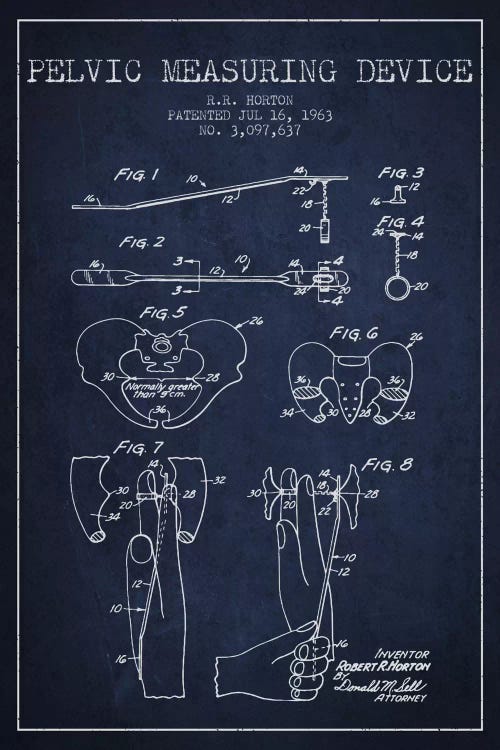 PELVIC MEASURING DEVICE
R.R. HORTON
PATENTED JUL 16, 1963
NO. 3,097,637
FIG. 1
16
10
12
14
22
18
20
FIG. 3
12
16
FIG. 2
16
3
3
12
10
14
4
24
20
4
FIG. 4
24
14
18
20
FIG. 5
26
30
28
Normally greater
than 9 cm.
36
FIG. 6
26
36
36
34
30
28
32
FIG. 7
14
30
20
28
32
34
12
10
16
FIG. 8
14
18
30
28
20
22
10
12
16
INVENTOR
ROBERT R. HORTON
BY
Donald M. Sell
ATTORNEY